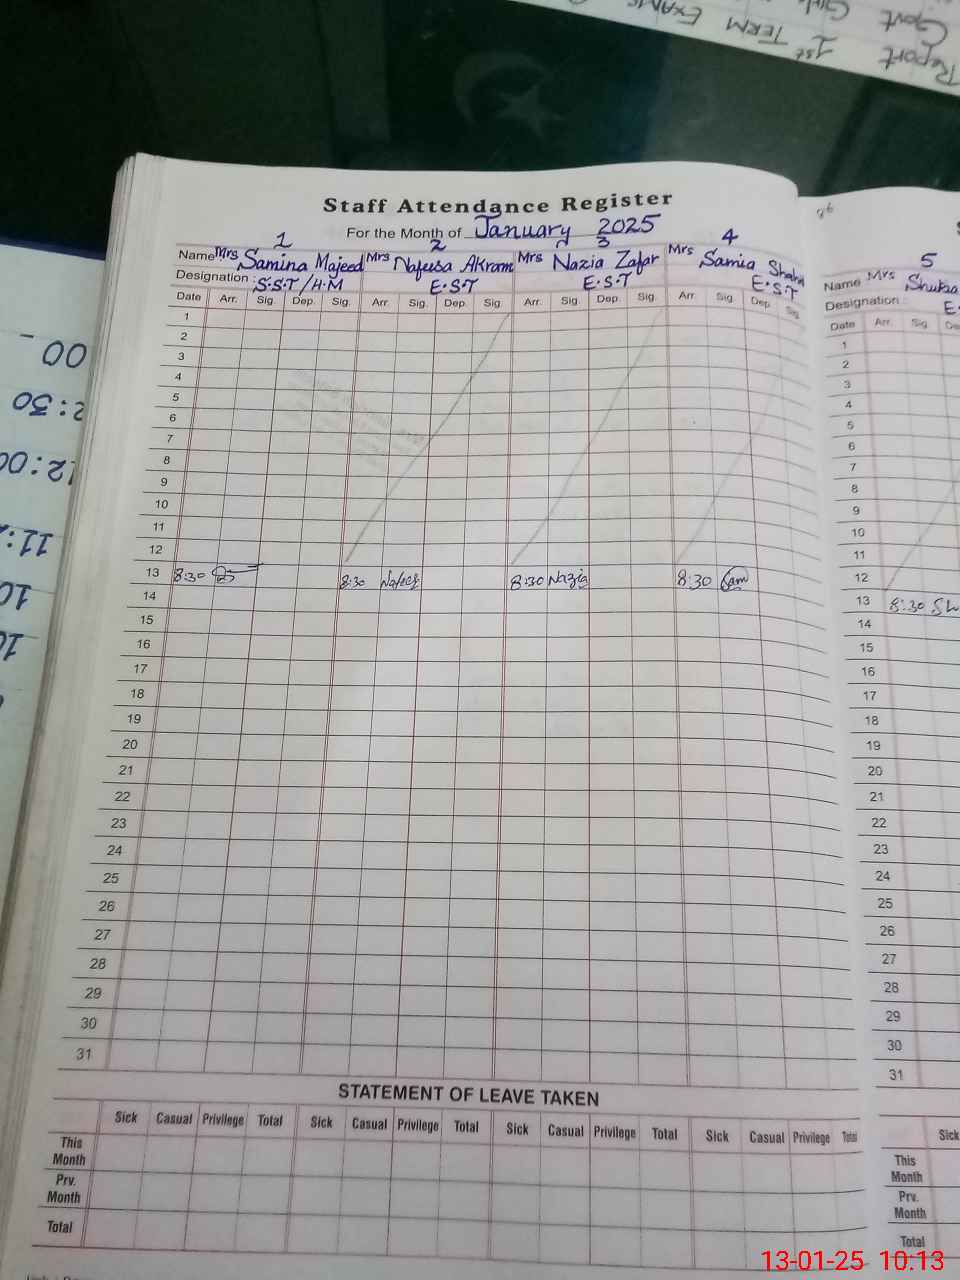 Report 1st TERM EXAMS
Govt Girls
Staff Attendance Register
For the Month of January 2025
1 2 3 4
Name Mrs Samina Majeed Mrs Nafeesa Akram Mrs Nazia Zafar Mrs Samia
Designation : S.S.T/H.M E.S.T E.S.T E.S.T
Date Arr. Sig. Dep. Sig. Arr. Sig. Dep. Sig. Arr. Sig. Dep. Sig. Arr. Sig. Dep. Sig.
1
2
3
4
5
6
7
8
9
10
11
12
13 8:30 8:30 8:30 Nazia 8:30 Sam
14
15
16
17
18
19
20
21
22
23
24
25
26
27
28
29
30
31
STATEMENT OF LEAVE TAKEN
Sick Casual Privilege Total Sick Casual Privilege Total Sick Casual Privilege Total Sick Casual Privilege Total
This Month
Prv. Month
Total
5
Name Mrs
Designation :
Date Arr. Sig
1
2
3
4
5
6
7
8
9
10
11
12
13 8:30
14
15
16
17
18
19
20
21
22
23
24
25
26
27
28
29
30
31
Sick
This Month
Prv. Month
Total
13-01-25 10:13